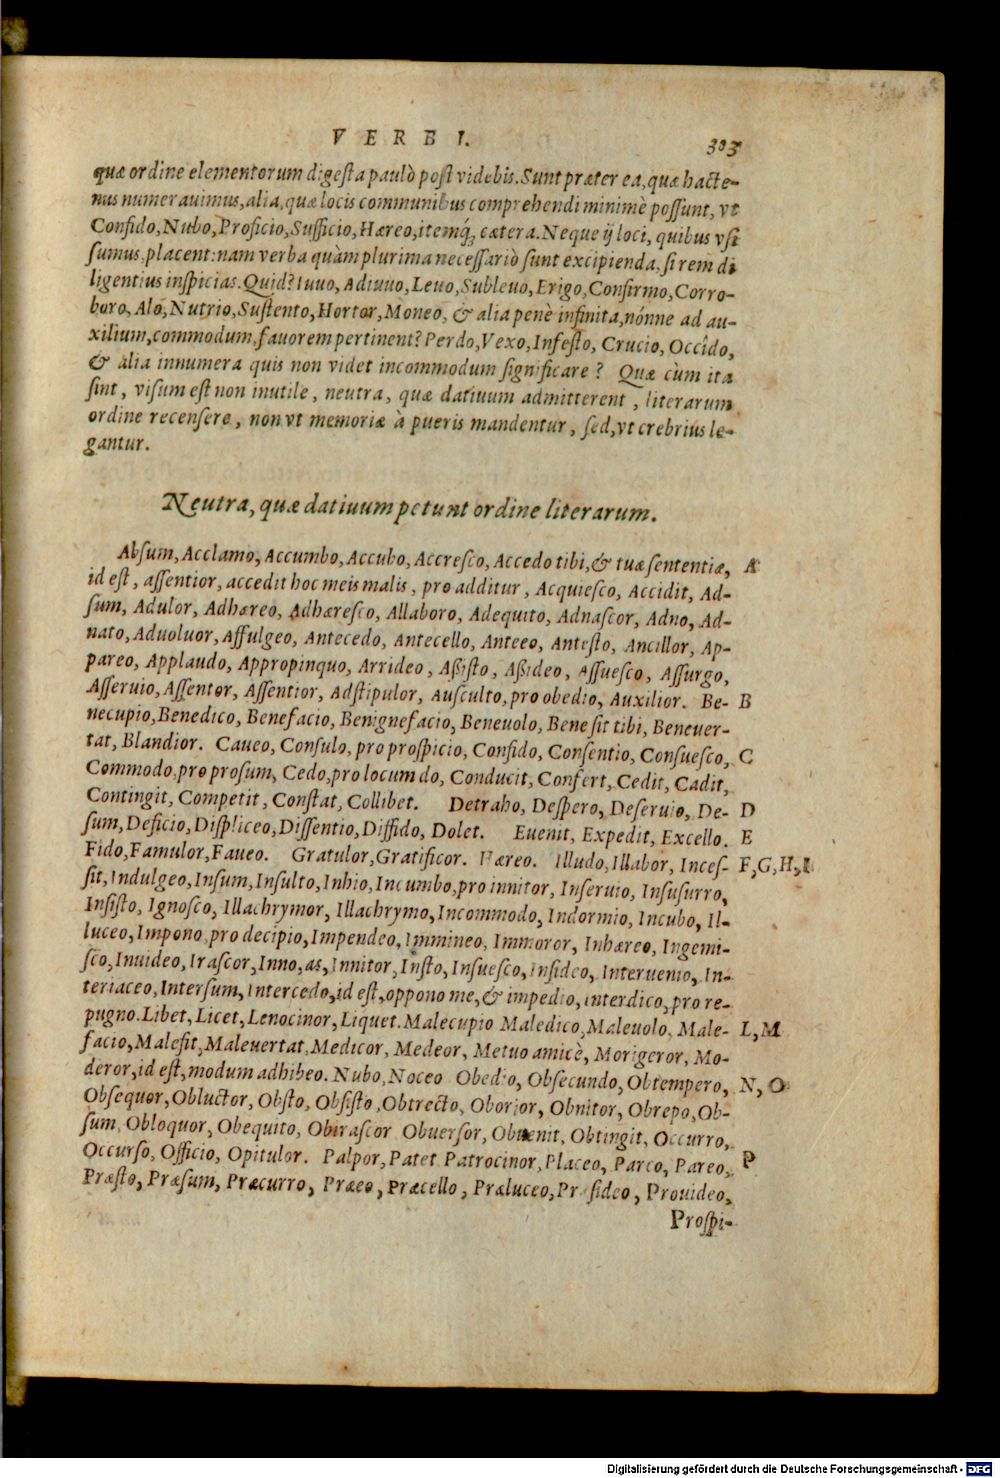 VERBI.
303
quæ ordine elementorum digesta paulò post videbis. Sunt præter ea, quæ hacte-
nus numerauimus, alia, quæ locis communibus comprehendi minimè possunt, vt
Confido, Nubo, Proficio, Sufficio, Hæreo, itemq́; cætera. Neque ij loci, quibus vsi
sumus, placent: nam verba quàm plurima necessariò sunt excipienda, si rem di
ligentius inspicias. Quid? Iuuo, Adiuuo, Leuo, Subleuo, Erigo, Confirmo, Corro-
boro, Alo, Nutrio, Sustento, Hortor, Moneo, & alia penè infinita, nónne ad au-
xilium, commodum, fauorem pertinent? Perdo, Vexo, Infesto, Crucio, Occîdo,
& alia innumera quis non videt incommodum significare? Quæ cùm ita
sint, visum est non inutile, neutra, quæ datiuum admitterent, literarum
ordine recensere, non vt memoriæ à pueris mandentur, sed, vt crebrius le-
gantur.
Neutra, quæ datiuum petunt ordine literarum.
Absum, Acclamo, Accumbo, Accubo, Accresco, Accedo tibi, & tuæ sententiæ, A
id est, assentior, accedit hoc meis malis, pro additur, Acquiesco, Accidit, Ad-
sum, Adulor, Adhæreo, Adhæresco, Allaboro, Adequito, Adnascor, Adno, Ad-
nato, Aduoluor, Affulgeo, Antecedo, Antecello, Anteeo, Antesto, Ancillor, Ap-
pareo, Applaudo, Appropinquo, Arrideo, Aßisto, Aßideo, Assuesco, Assurgo,
Asseruio, Assentor, Assentior, Adstipulor, Ausculto, pro obedio, Auxilior. Be- B
necupio, Benedico, Benefacio, Benignefacio, Beneuolo, Bene sit tibi, Beneuer-
tat, Blandior. Caueo, Consulo, pro prospicio, Confido, Consentio, Consuesco, C
Commodo, pro prosum, Cedo, pro locum do, Conducit, Confert, Cedit, Cadit,
Contingit, Competit, Constat, Collibet. Detraho, Despero, Deseruio, De- D
sum, Deficio, Displiceo, Dissentio, Diffido, Dolet. Euenit, Expedit, Excello. E
Fido, Famulor, Faueo. Gratulor, Gratificor. Hæreo. Illudo, Illabor, Inces- F, G, H, I
sit, Indulgeo, Insum, Insulto, Inhio, Incumbo, pro innitor, Inseruio, Insusurro,
Insisto, Ignosco, Illachrymor, Illachrymo, Incommodo, Indormio, Incubo, Il-
luceo, Impono, pro decipio, Impendeo, Immineo, Immoror, Inhæreo, Ingemi-
sco, Inuideo, Irascor, Inno, as, Innitor, Insto, Insuesco, Insideo, Interuenio, In-
teriaceo, Intersum, Intercedo, id est, oppono me, & impedio, Interdico, pro re-
pugno. Libet, Licet, Lenocinor, Liquet. Malecupio Maledico, Maleuolo, Male- L, M
facio, Malefit, Maleuertat, Medicor, Medeor, Metuo amicè, Morigeror, Mo-
deror, id est, modum adhibeo. Nubo, Noceo Obedio, Obsecundo, Obtempero, N, O
Obsequor, Obluctor, Obsto, Obsisto, Obtrecto, Oborior, Obnitor, Obrepo, Ob-
sum, Obloquor, Obequito, Obirascor Obuersor, Obuenit, Obtingit, Occurro,
Occurso, Officio, Opitulor. Palpor, Patet Patrocinor, Placeo, Parco, Pareo, P
Præsto, Præsum, Præcurro, Præeo, Præcello, Præluceo, Præsideo, Prouideo,
Prospi-
Digitalisierung gefördert durch die Deutsche Forschungsgemeinschaft - DFG